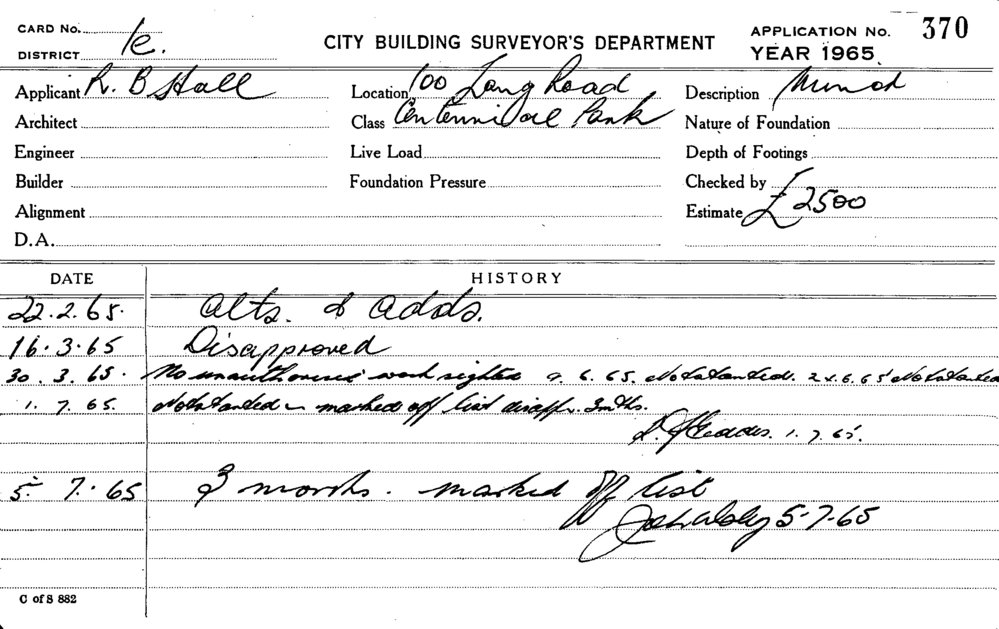 CARD No. 1e. CITY BUILDING SURVEYOR'S DEPARTMENT APPLICATION No. 370
DISTRICT YEAR 1965
Applicant R. B Hall Location 100 Lang Road Description
Architect Class Centennial Park Nature of Foundation
Engineer Live Load Depth of Footings
Builder Foundation Pressure Checked by
Alignment Estimate £2500
D.A.
DATE HISTORY
22.2.65. Alts. & Adds.
16.3.65 Disapproved
30.3.65. No unauthorised work sighted 9.6.65. Not started. 24.6.65 Not started
1.7.65. Not started marked off list disapp. 3mths.
Geddes. 1.7.65.
5.7.65 3 months. marked off list
5-7-65
C of S 882